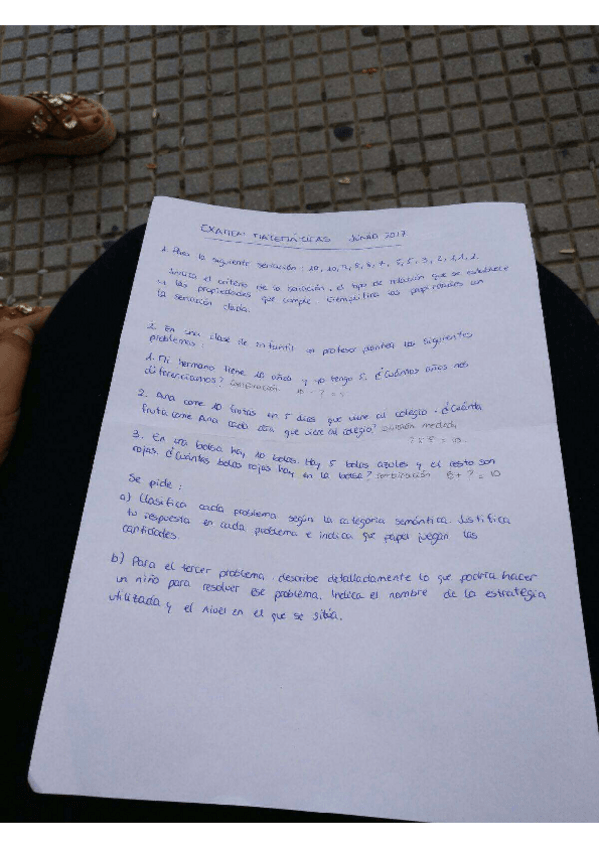 EXAMEN MATEMÁTICAS JUNIO 2017
1. Dada la siguiente seriación: 10, 10, 7, 5, 5, 3, 2, 1, 1, 2.
Indica el criterio de la seriación, el tipo de relación que se establece
y las propiedades que cumple. Ejemplifica las propiedades con
la seriación dada.
2. En una clase de infantil un profesor plantea los siguientes
problemas:
1. Mi hermano tiene 10 años y yo tengo 5. ¿Cuántos años nos
diferenciamos? comparación 10 - ? = 5
2. Ana come 10 frutas en 5 días que viene al colegio. ¿Cuánta
fruta come Ana cada día que viene al colegio? división medida
? x 5 = 10
3. En una bolsa hay 10 bolas. Hay 5 bolas azules y el resto son
rojas. ¿Cuántas bolas rojas hay en la bolsa? combinación 5 + ? = 10
Se pide:
a) Clasifica cada problema según la categoría semántica. Justifica
tu respuesta en cada problema e indica que papel juegan las
cantidades.
b) Para el tercer problema describe detalladamente lo que podría hacer
un niño para resolver ese problema. Indica el nombre de la estrategia
utilizada y el nivel en el que se sitúa.